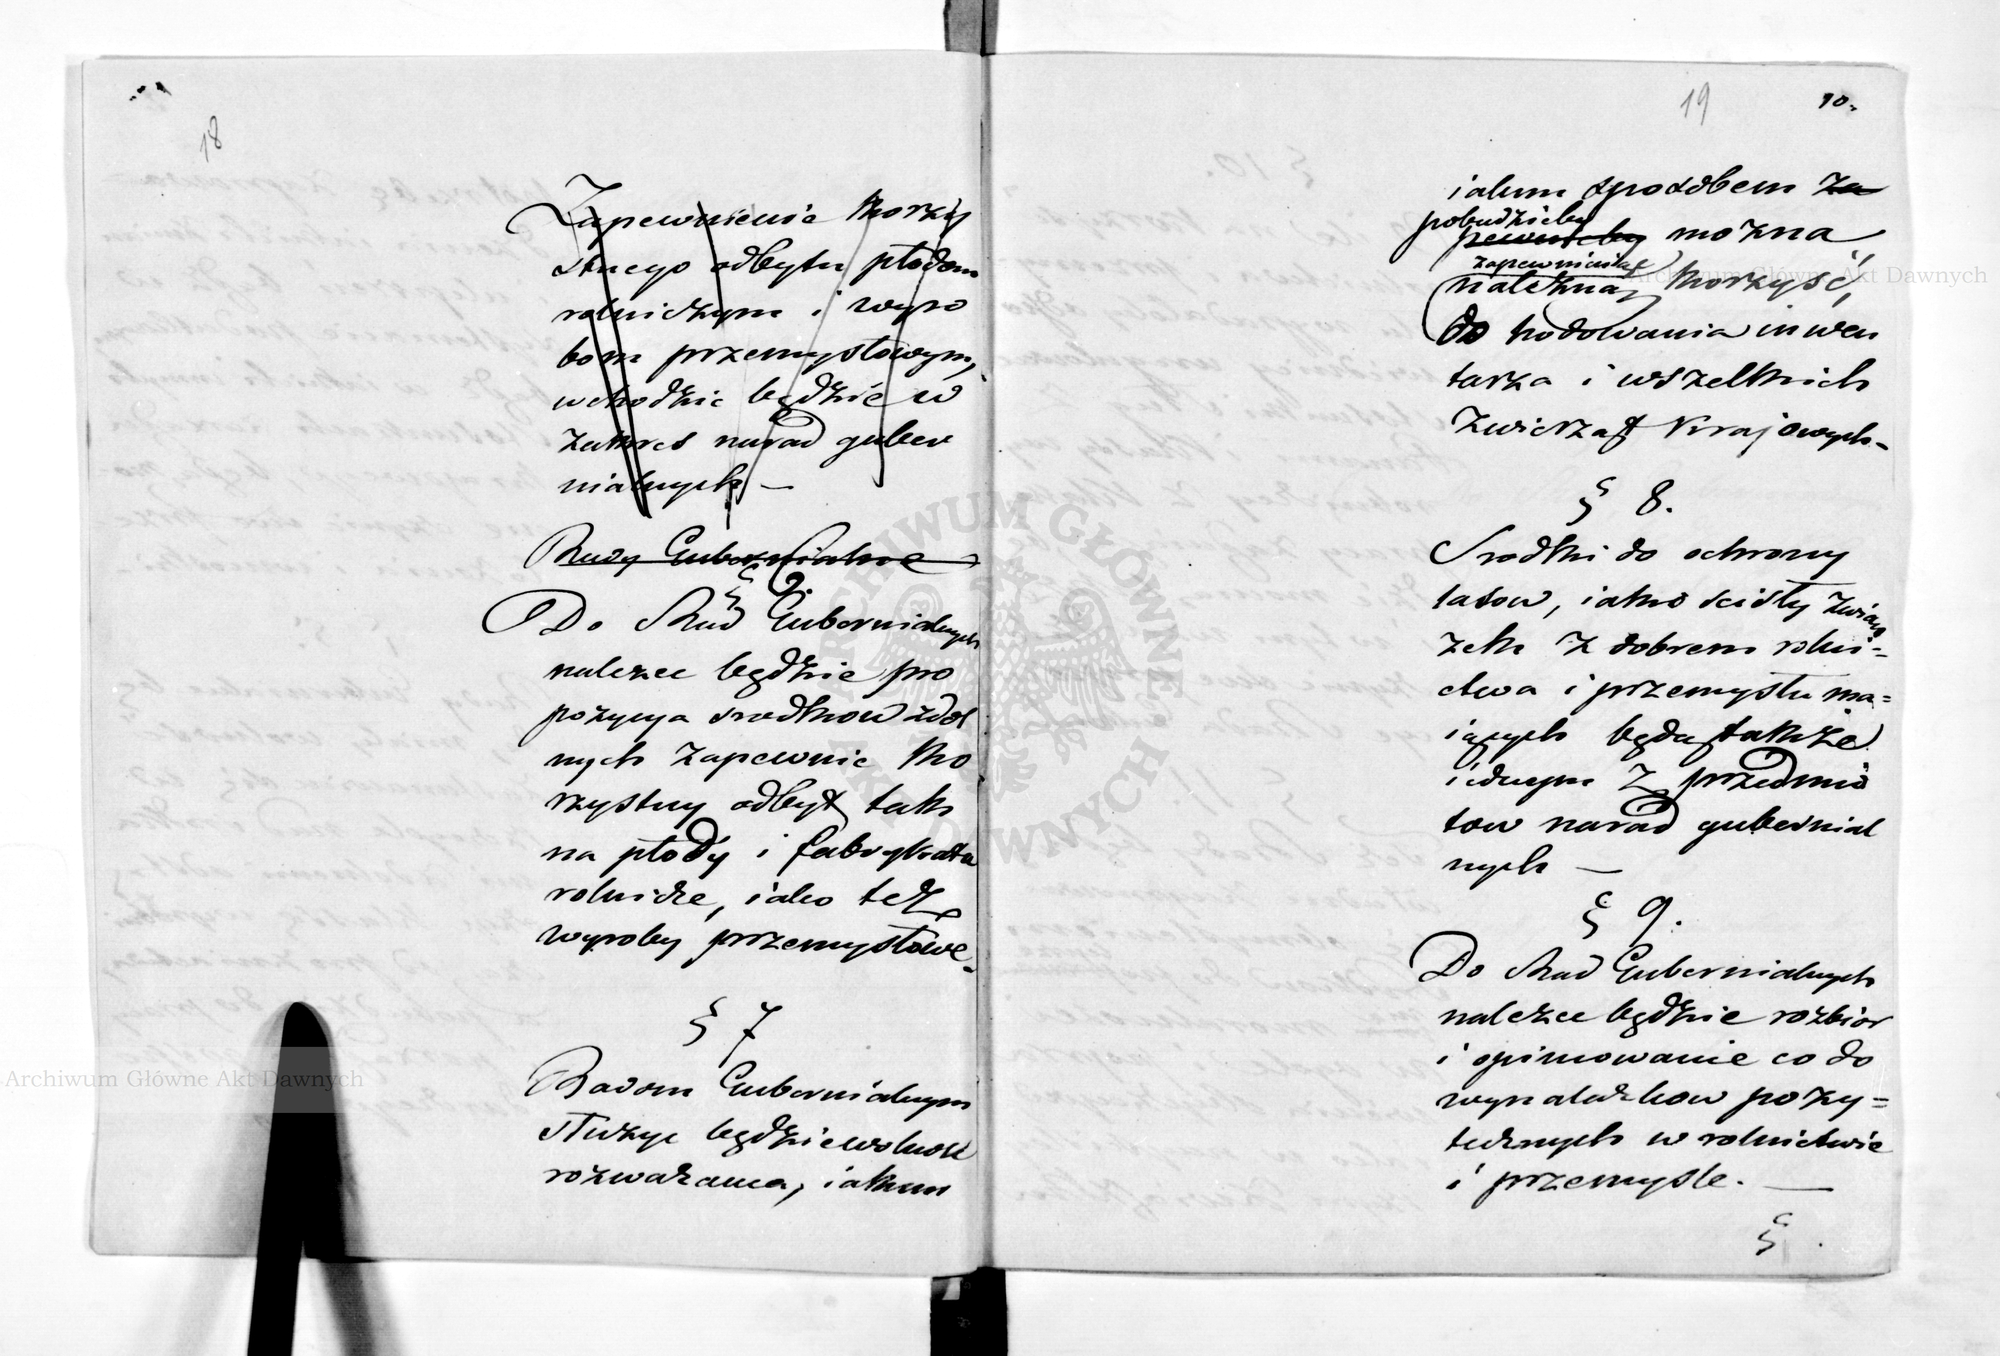 18
Zapewnienie korzy
stnego odbytu płodom
rolniczym i wyro
bom przemysłowym,
wchodzic będzie w
zakres narad guber
nialnych —
Rady Gubernialne
§
Do Rad Gubernialnych
nalezec będzie pro
pozycya srodkow zdol
nych zapewnic ko
rzystny odbyt tak
na płody i fabrykata
rolnicze, iako też
wyroby przemysłowe.
§ 7
Radom Gubernialnym
służyc będzie wolnosc
rozważania, iakim
19 10.
iakim sposobem za
pobudzićby
pewnićby można
zapewniaiąc
należną korzyść,
do hodowania inwen
tarza i wszelkich
zwierząt krajowych.
§ 8.
Srodki do ochrony
lasow, iako scisły związ
zek z dobrem rolni=
ctwa i przemysłu ma=
iących będą także
iednym z przedmio
tow narad gubernial
nych —
§ 9.
Do Rad Gubernialnych
nalezec będzie rozbior
i opiniowanie co do
wynalazkow pozy=
tecznych w rolnictwie
i przemysle. —
§ .
Archiwum Główne Akt Dawnych
Archiwum Główne Akt Dawnych
ARCHIWUM GŁÓWNE AKT DAWNYCH